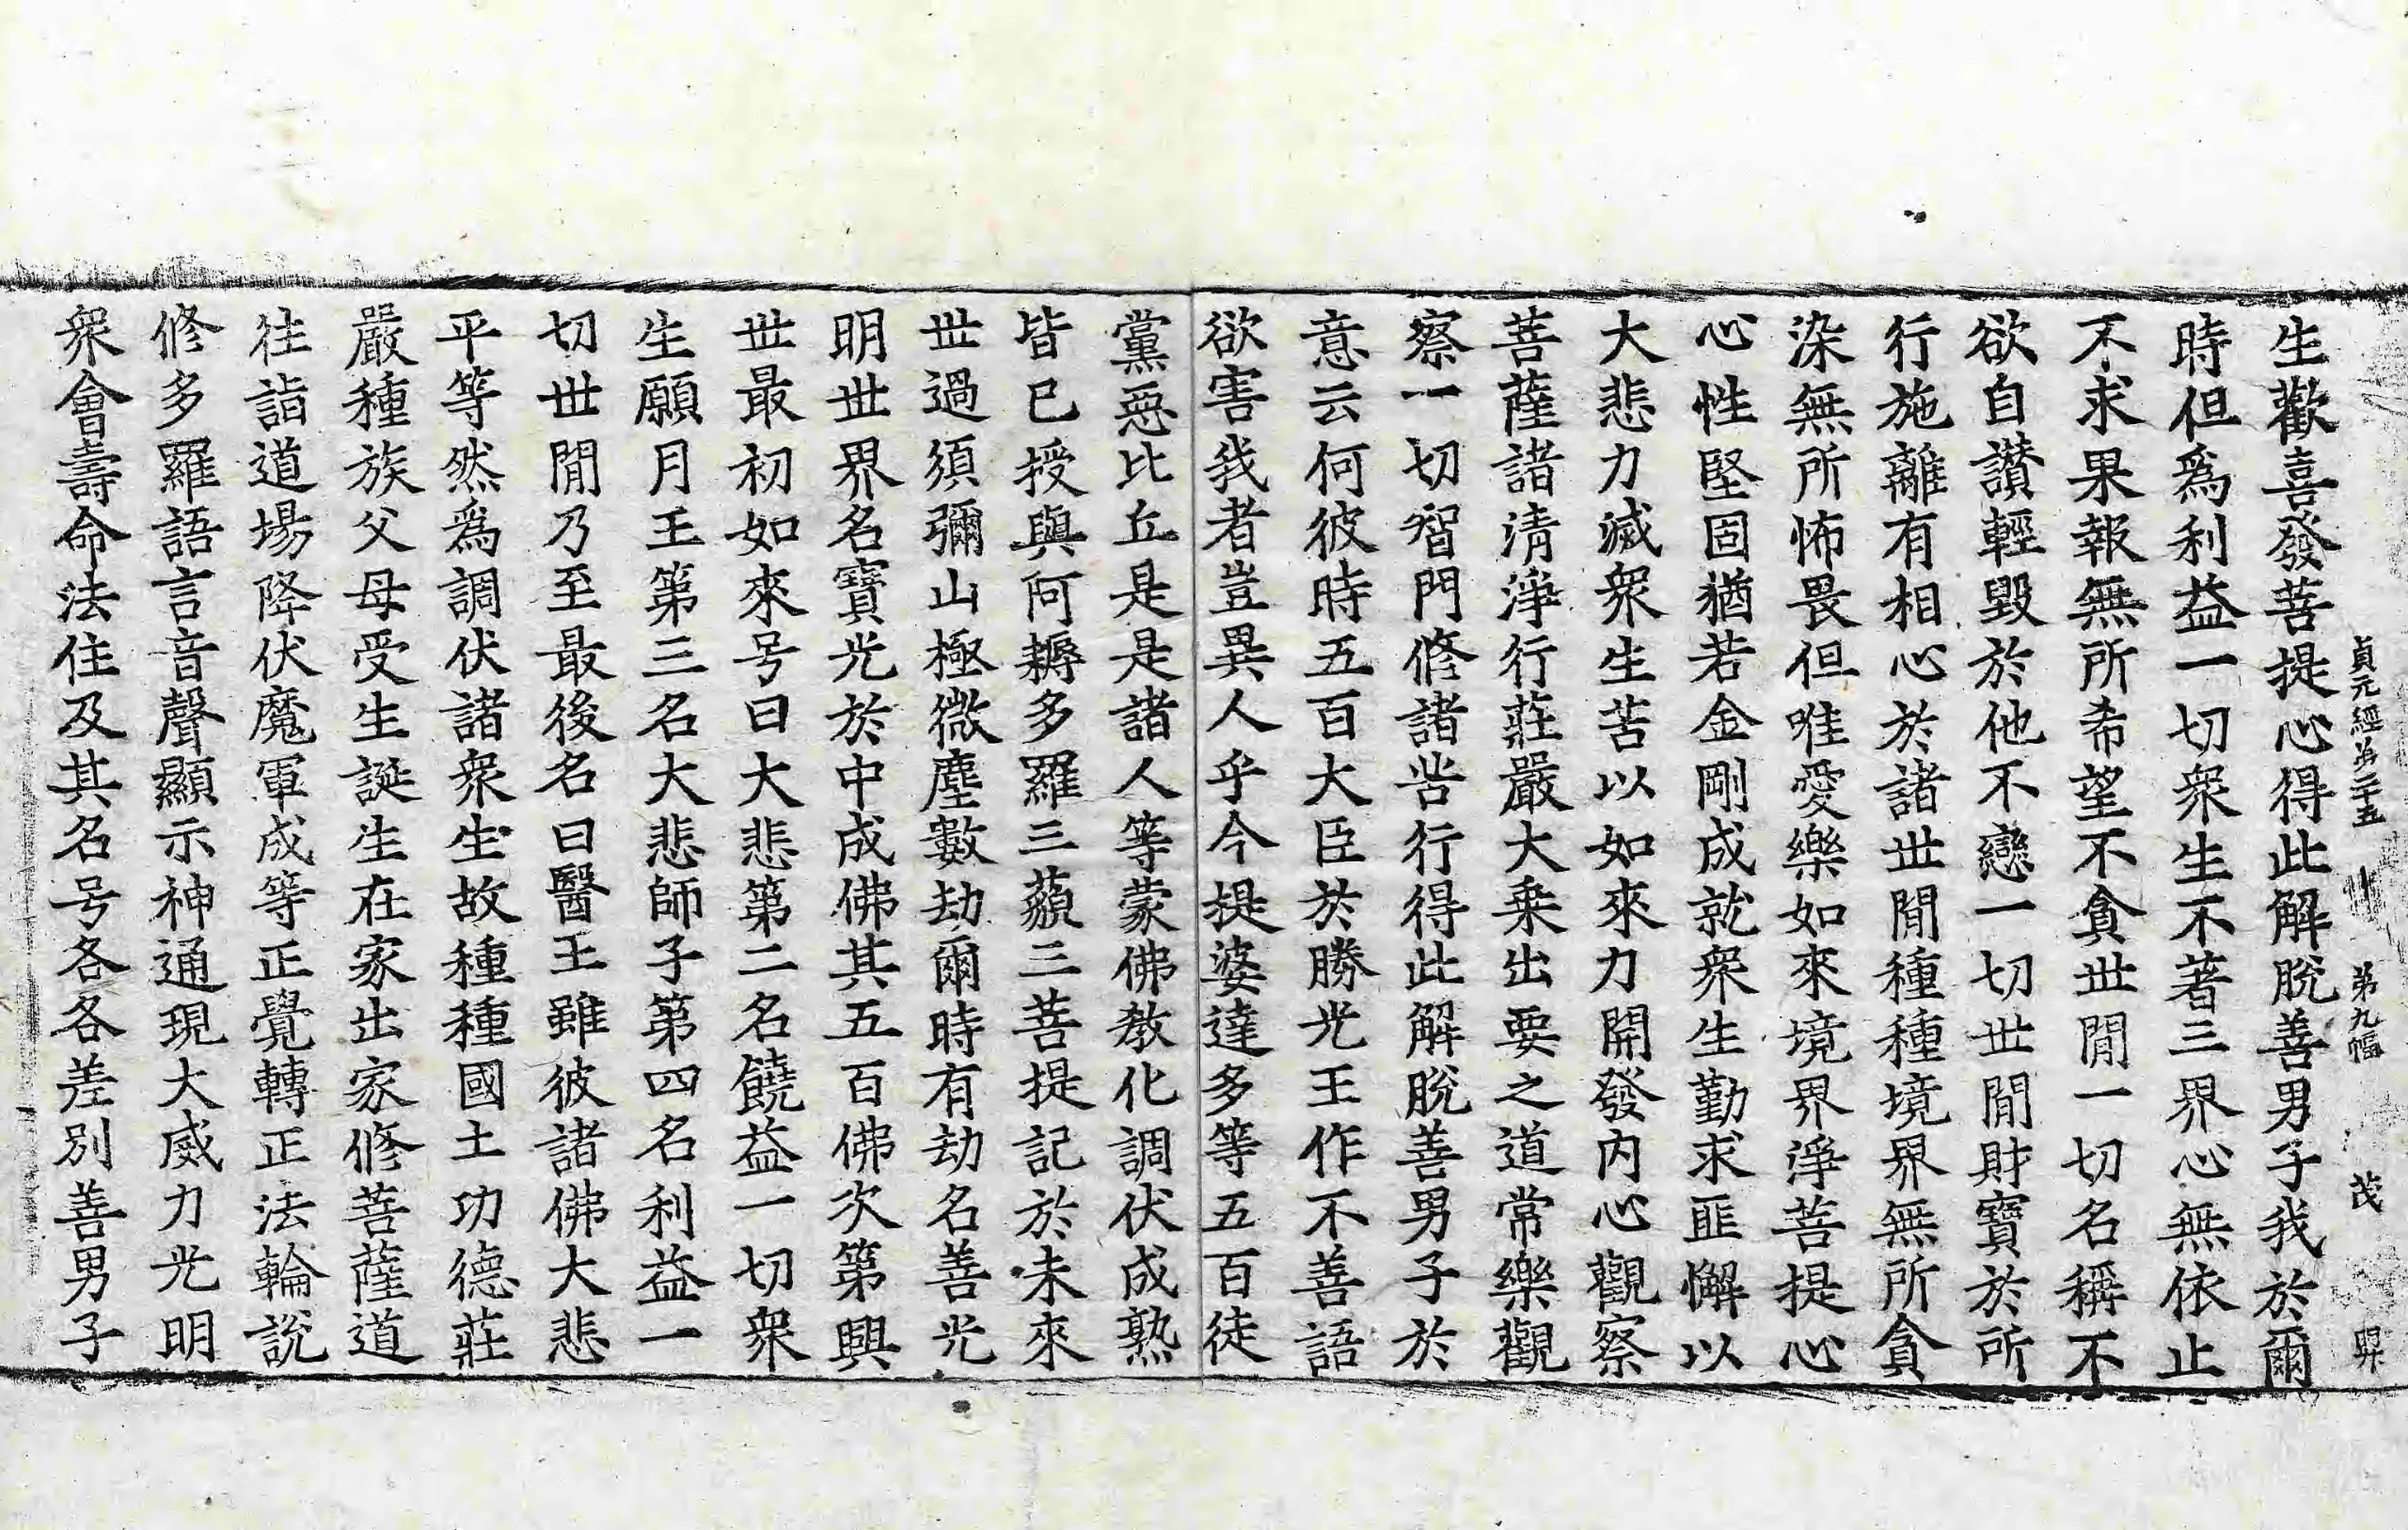 貞元經第二十五 第九幅 茂
生歡喜發菩提心得此解脫善男子我於爾
時但爲利益一切衆生不著三界心無依止
不求果報無所希望不貪世閒一切名稱不
欲自讃輕毀於他不戀一切世閒財寶於所
行施離有相心於諸世閒種種境界無所貪
染無所怖畏但唯愛樂如來境界淨菩提心
心性堅固猶若金剛成就衆生勤求匪懈以
大悲力滅衆生苦以如來力開發内心觀察
菩薩諸清淨行莊嚴大乗出要之道常樂觀
察一切智門修諸呰行得此解脫善男子於
意云何彼時五百大臣於勝光王作不善語
欲害我者豈異人乎今提婆達多等五百徒
黨惡比丘是是諸人等蒙佛教化調伏成熟
皆已授與阿耨多羅三藐三菩提記於未來
世過須彌山極微塵數劫爾時有劫名善光
明世界名寶光於中成佛其五百佛次第興
世最初如來号曰大悲第二名饒益一切衆
生願月王第三名大悲師子第四名利益一
切世閒乃至最後名曰醫王雖彼諸佛大悲
平等然爲調伏諸衆生故種種國土功德莊
嚴種族父母受生誕生在家出家修菩薩道
往詣道場降伏魔軍成等正覺轉正法輪說
修多羅語言音聲顯示神通現大威力光明
衆會壽命法住及其名号各各差別善男子